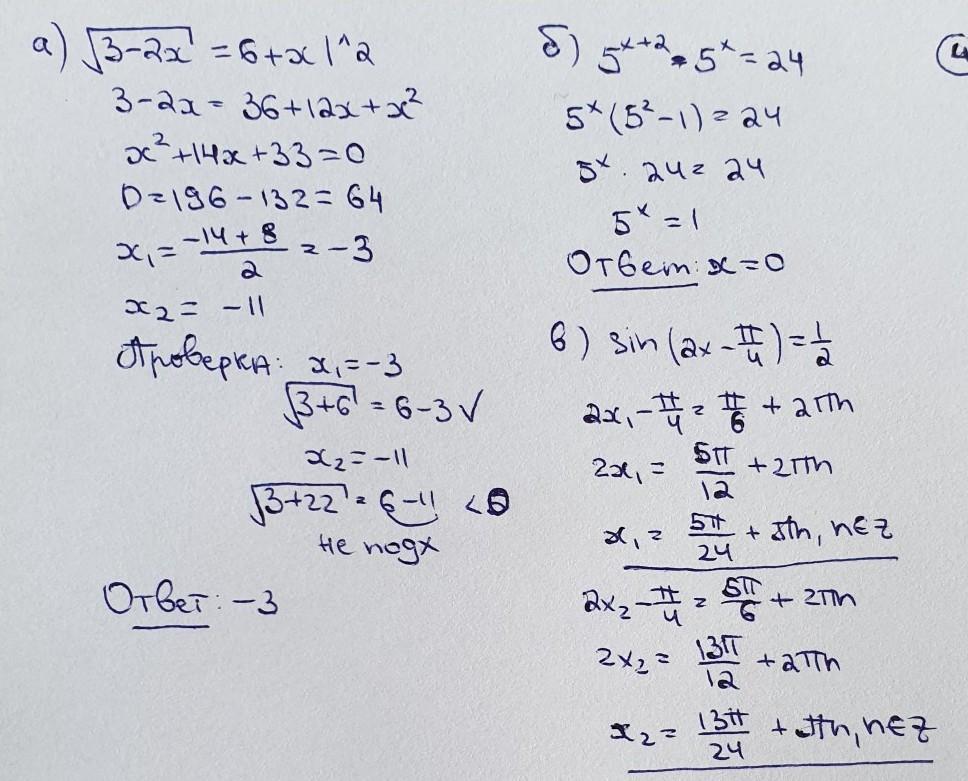 а) √(3-2x) = 6+x |^2
3-2x = 36+12x+x²
x²+14x+33=0
D=196-132=64
x₁= (-14+8)/2 = -3
x₂= -11
Проверка: x₁=-3
√(3+6) = 6-3 ✓
x₂=-11
√(3+22) = 6-11 <0
не подх
Ответ: -3
б) 5^(x+2) - 5^x = 24
5^x (5²-1) = 24
5^x · 24 = 24
5^x = 1
Ответ: x=0
в) sin(2x - π/4) = 1/2
2x₁ - π/4 = π/6 + 2πn
2x₁ = 5π/12 + 2πn
x₁ = 5π/24 + πn, n∈z
2x₂ - π/4 = 5π/6 + 2πn
2x₂ = 13π/12 + 2πn
x₂ = 13π/24 + πn, n∈z
4